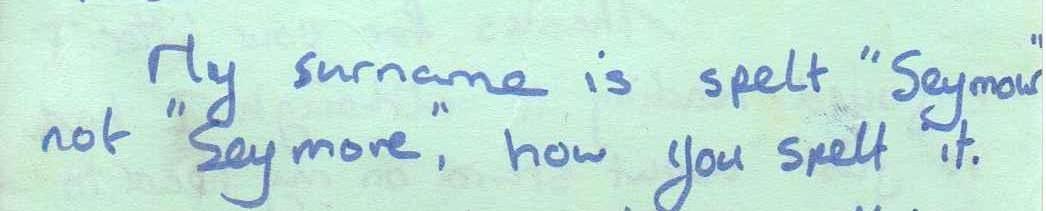 My surname is spelt "Seymour"
not "Seymore", how you spelt it.